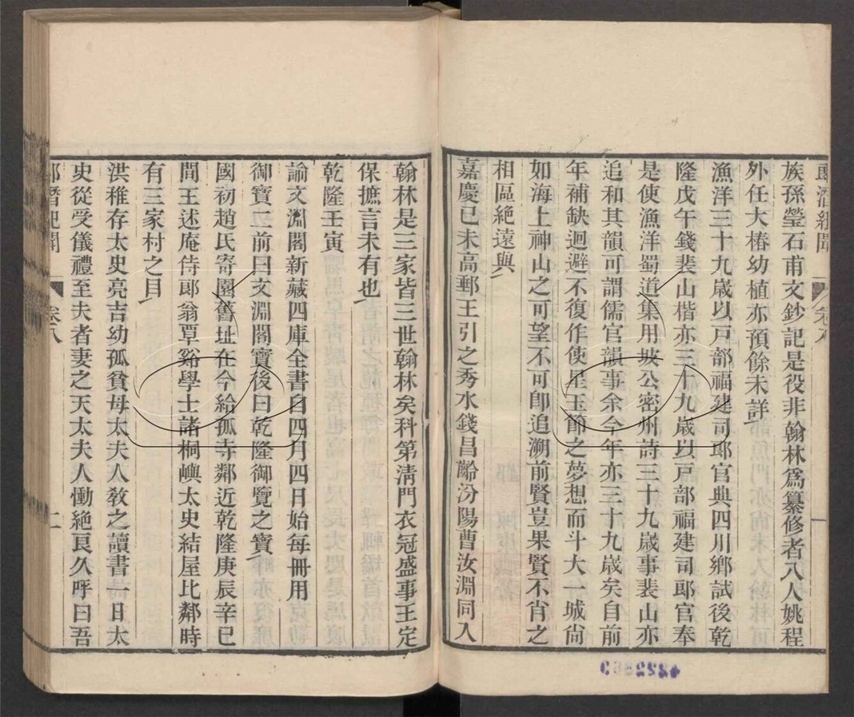 郎潛紀聞
卷八
一
族孫瑩石甫文鈔記是役非翰林爲纂修者八人姚程
外任大椿幼植亦預餘未詳
漁洋三十九歲以戸部福建司郎官典四川鄉試後乾
隆戊午錢裴山楷亦三十九歲以戸部福建司郎官奉
是使漁洋蜀道集用坡公密州詩三十九歲事裴山亦
追和其韻可謂儒官韻事余今年亦三十九歲矣自前
年補缺迴避不復作使星玉節之夢想而斗大一城尙
如海上神山之可望不可卽追溯前賢豈果賢不肖之
相區絕遠與
嘉慶己未高郵王引之秀水錢昌齡汾陽曹汝淵同入
翰林是三家皆三世翰林矣科第淸門衣冠盛事王定
保摭言未有也
乾隆壬寅
諭文淵閣新藏四庫全書自四月四日始每冊用
御寳二前曰文淵閣寳後曰乾隆御覽之寳
國初趙氏寄園舊址在今給孤寺鄰近乾隆庚辰辛巳
間王述庵侍郎翁覃谿學士諸桐嶼太史結屋比鄰時
有三家村之目
洪稚存太史亮吉幼孤貧母太夫人敎之讀書一日太
史從受儀禮至夫者妻之天太夫人慟絕良久呼曰吾
郎潛紀聞
卷八
二